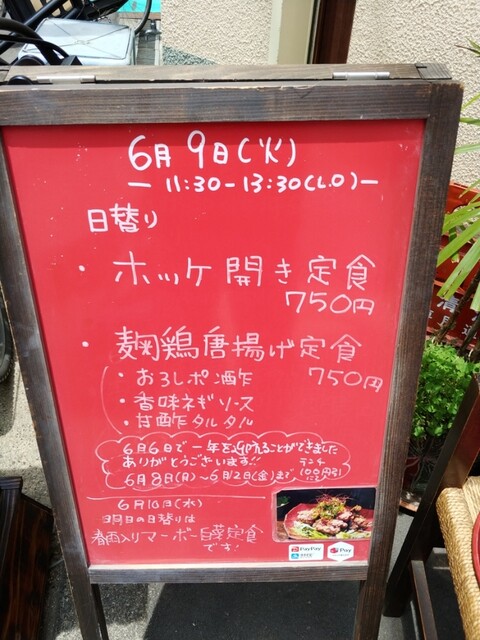 6月9日(火)
ー 11:30-13:30(L.O)ー
日替り
・ホッケ開き定食
750円
・麹鶏唐揚げ定食
750円
・おろしポン酢
・香味ネギソース
・甘酢タルタル
6月6日で一年を迎えることができました
ありがとうございます!!
6月8日(月)~6月12日(金)まで ランチ100円引
6月10日(水)
明日の日替りは
春雨入りマーボー白菜定食
です!
PayPay
Pay